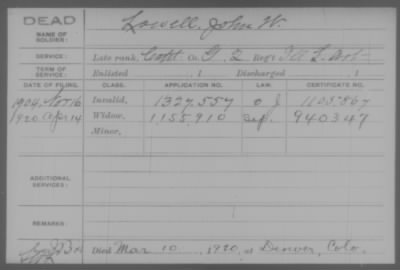 DEAD
NAME OF SOLDIER: Lowell, John W.
SERVICE: Late rank, Capt Co. G, 2 Reg't Ill L. Art
TERM OF SERVICE: Enlisted , 1 Discharged , 1
DATE OF FILING. CLASS. APPLICATION NO. LAW. CERTIFICATE NO.
1904, Nov 16 Invalid, 1327,557 1105,567
1920 Apr 14 Widow, 1,155,910 940347
Minor,
ADDITIONAL SERVICES:
REMARKS:
Died Mar 10, 1920, at Denver, Colo.